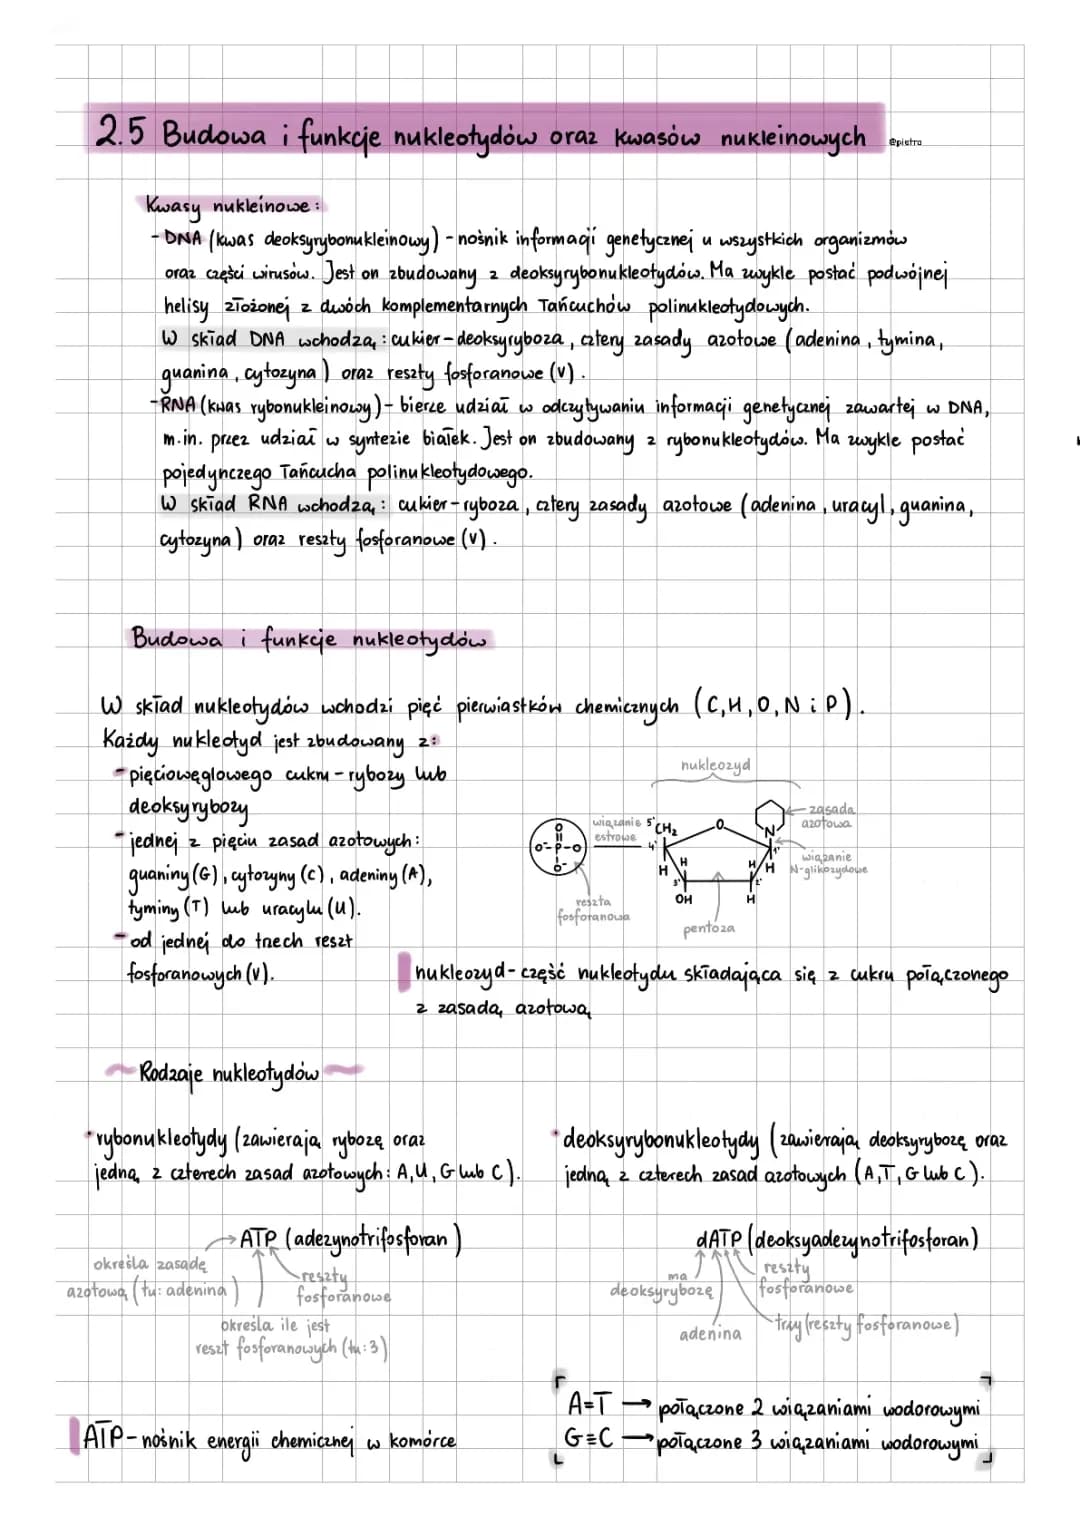 2.5 Budowa i funkcje nukleotydów oraz kwasów nukleinowych @pietra
Kwasy nukleinowe:
- DNA (kwas deoksyrybonukleinowy) - nośnik informacji genetycznej u wszystkich organizmów
oraz części wirusów. Jest on zbudowany z deoksyrybonukleotydów. Ma zwykle postać podwójnej
helisy złożonej z dwóch komplementarnych łańcuchów polinukleotydowych.
W skład DNA wchodzą: cukier - deoksyryboza, cztery zasady azotowe (adenina, tymina,
guanina, cytozyna) oraz reszty fosforanowe (V).
- RNA (kwas rybonukleinowy) - bierze udział w odczytywaniu informacji genetycznej zawartej w DNA,
m.in. przez udział w syntezie białek. Jest on zbudowany z rybonukleotydów. Ma zwykle postać
pojedynczego łańcucha polinukleotydowego.
W skład RNA wchodzą: cukier - ryboza, cztery zasady azotowe (adenina, uracyl, guanina,
cytozyna) oraz reszty fosforanowe (V).
Budowa i funkcje nukleotydów
W skład nukleotydów wchodzi pięć pierwiastków chemicznych (C, H, O, N i P).
Każdy nukleotyd jest zbudowany z:
- pięciowęglowego cukru - rybozy lub
deoksyrybozy
- jednej z pięciu zasad azotowych:
guaniny (G), cytozyny (C), adeniny (A),
tyminy (T) lub uracylu (U).
- od jednej do trzech reszt
fosforanowych (V).
nukleozyd
zasada
azotowa
wiązanie
estrowe
5' CH₂
O
N
4'
1'
O
O⁻-P-O
O⁻
H
H
H
H
3'
2'
OH
H
wiązanie
N-glikozydowe
reszta
fosforanowa
pentoza
nukleozyd - część nukleotydu składająca się z cukru połączonego
z zasadą azotową
~ Rodzaje nukleotydów ~
• rybonukleotydy (zawierają rybozę oraz
jedną z czterech zasad azotowych: A, U, G lub C).
• deoksyrybonukleotydy (zawierają deoksyrybozę oraz
jedną z czterech zasad azotowych (A, T, G lub C).
→ ATP (adezynotrifosforan)
określa zasadę
azotową (tu: adenina)
reszty
fosforanowe
określa ile jest
reszt fosforanowych (tu: 3)
dATP (deoksyadezynotrifosforan)
ma
deoksyrybozę
reszty
fosforanowe
adenina
trzy (reszty fosforanowe)
ATP - nośnik energii chemicznej w komórce
A=T → połączone 2 wiązaniami wodorowymi
G≡C → połączone 3 wiązaniami wodorowymi